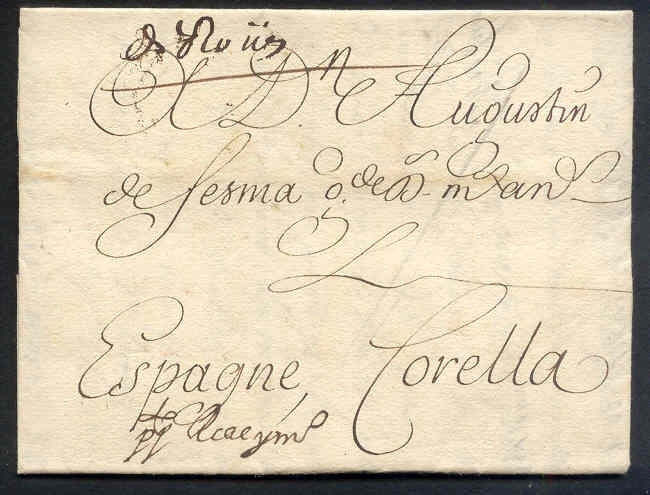 de Roüen
A D.n Augustin
de Sesma g.de D.s m. an.s
Espagne, Corella